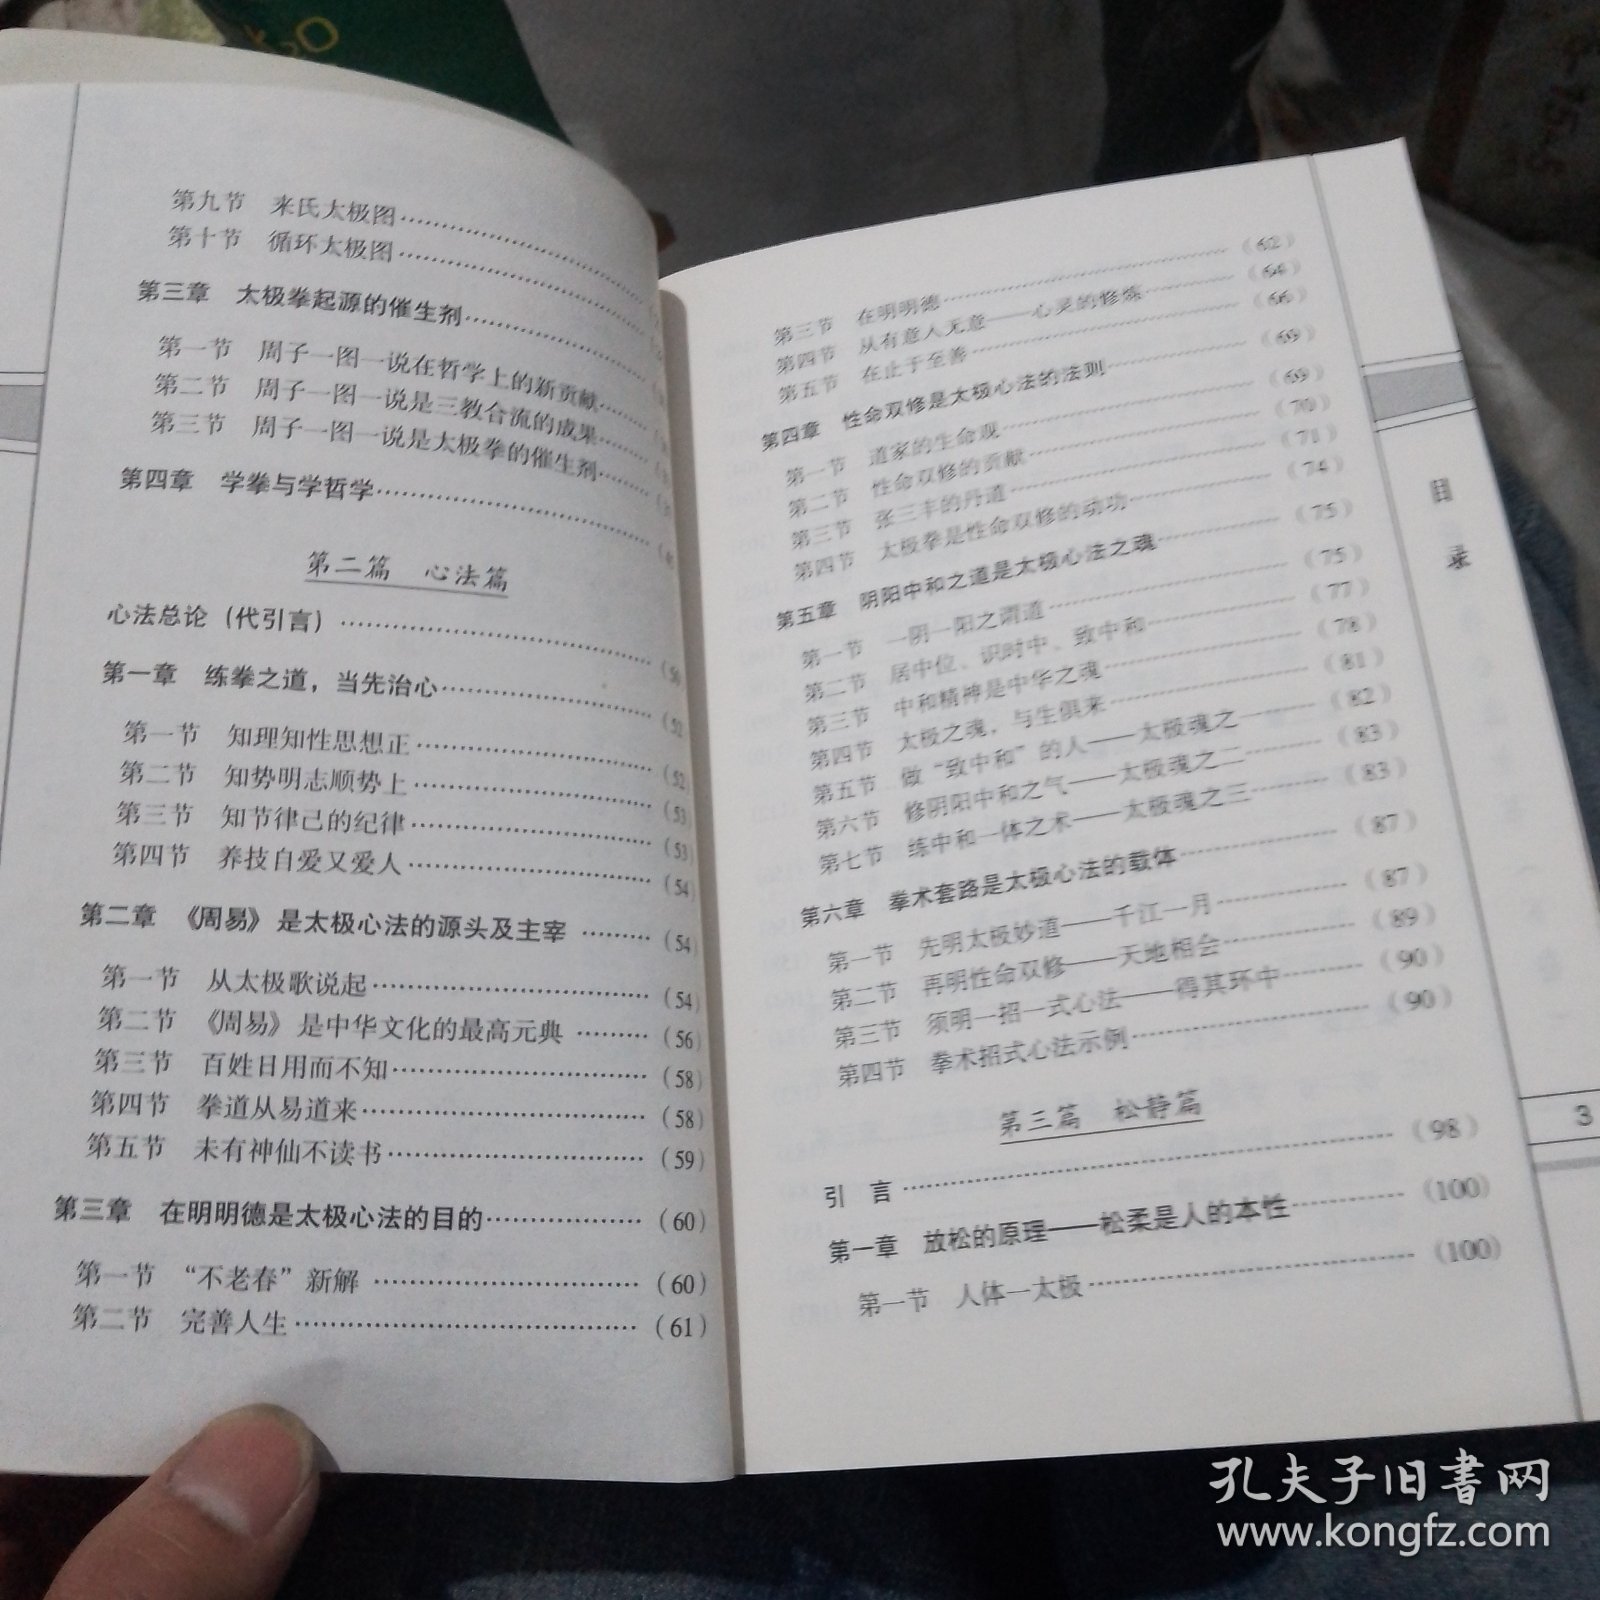 第九节 来氏太极图
第十节 循环太极图
第三章 太极拳起源的催生剂
第一节 周子一图一说在哲学上的新贡献
第二节 周子一图一说是三教合流的成果
第三节 周子一图一说是太极拳的催生剂
第四章 学拳与学哲学
第二篇 心法篇
心法总论（代引言）………（50）
第一章 练拳之道，当先治心………（52
第一节 知理知性思想正………（52）
第二节 知势明志顺势上………（53）
第三节 知节律己的纪律………（53）
第四节 养技自爱又爱人………（54）
第二章 《周易》是太极心法的源头及主宰………（54）
第一节 从太极歌说起………（54）
第二节 《周易》是中华文化的最高元典………（56）
第三节 百姓日用而不知………（58）
第四节 拳道从易道来………（58）
第五节 未有神仙不读书………（59）
第三章 在明明德是太极心法的目的………（60）
第一节 “不老春”新解………（60）
第二节 完善人生………（61）
第三节 在明明德………（62）
第四节 从有意人无意——心灵的修炼………（64）
第五节 在止于至善………（66）
第四章 性命双修是太极心法的法则………（69）
第一节 道家的生命观………（69）
第二节 性命双修的贡献………（70）
第三节 张三丰的丹道………（71）
第四节 太极拳是性命双修的动功………（74）
第五章 阴阳中和之道是太极心法之魂………（75）
第一节 一阴一阳之谓道………（75）
第二节 居中位、识时中、致中和………（77）
第三节 中和精神是中华之魂………（78）
第四节 太极之魂，与生俱来………（81）
第五节 做“致中和”的人——太极魂之一………（82）
第六节 修阴阳中和之气——太极魂之二………（83）
第七节 练中和一体之术——太极魂之三………（83）
第六章 拳术套路是太极心法的载体………（87）
第一节 先明太极妙道——千江一月………（87）
第二节 再明性命双修——天地相会………（89）
第三节 须明一招一式心法——得其环中………（90）
第四节 拳术招式心法示例………（90）
第三篇 松静篇
引 言………（98）
第一章 放松的原理——松柔是人的本性………（100）
第一节 人体一太极………（100）
目 录
3
孔夫子旧书网
www.kongfz.com